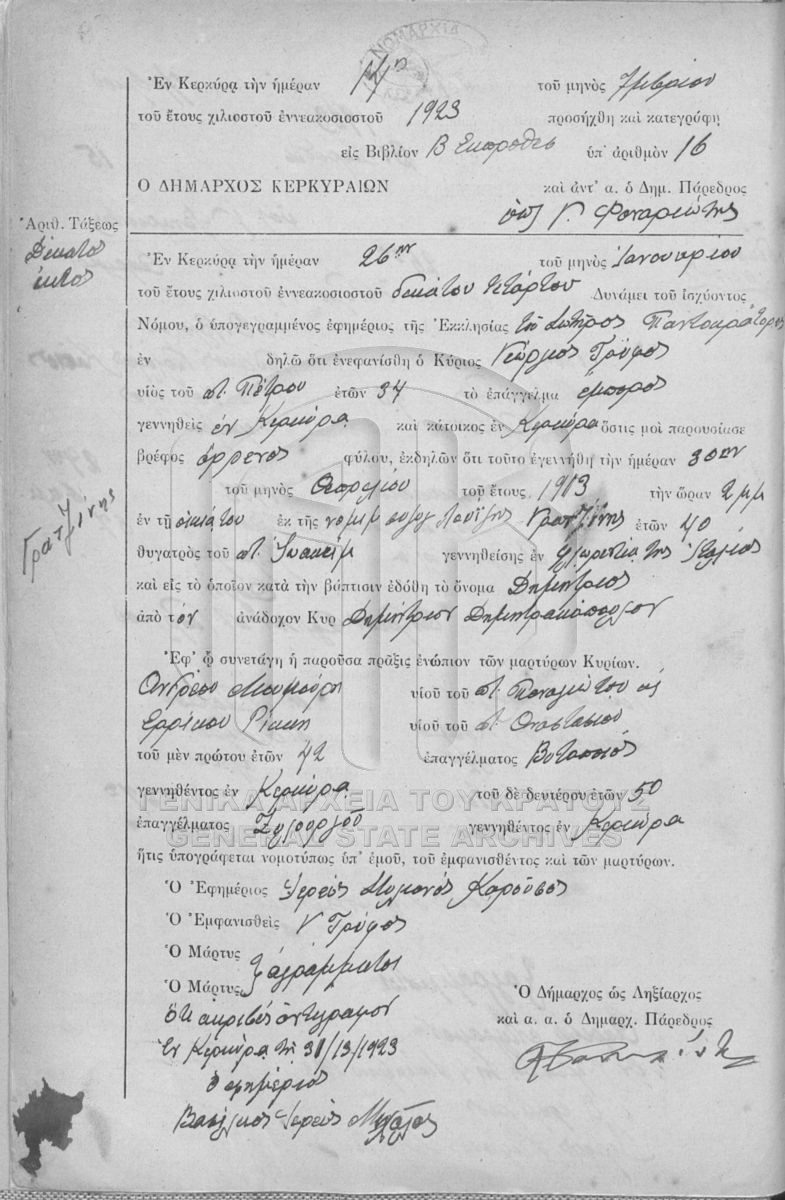 ΝΟΜΑΡΧΙΑ
Ἐν Κερκύρᾳ τὴν ἡμέραν 14η τοῦ μηνὸς 7μβρίου
τοῦ ἔτους χιλιοστοῦ ἐννεακοσιοστοῦ 1923 προσήχθη καὶ κατεγράφη
εἰς Βιβλίον Β Εκπροθες ὑπ' ἀριθμὸν 16
Ο ΔΗΜΑΡΧΟΣ ΚΕΡΚΥΡΑΙΩΝ καὶ ἀντ' α. ὁ Δημ. Πάρεδρος
Φαναριώτης
Ἀριθ. Τάξεως
Δέκατο
έκτος
Ἐν Κερκύρᾳ τὴν ἡμέραν 26ην τοῦ μηνὸς Ιανουαρίου
τοῦ ἔτους χιλιοστοῦ ἐννεακοσιοστοῦ δεκάτου τετάρτου Δυνάμει τοῦ ἰσχύοντος
Νόμου, ὁ ὑπογεγραμμένος ἐφημέριος τῆς Ἐκκλησίας τοῦ Σωτῆρος Παντοκράτορος
ἐν δηλῶ ὅτι ἐνεφανίσθη ὁ Κύριος Γεώργιος Τρύφος
υἱὸς τοῦ ποτ. Πέτρου ἐτῶν 34 τὸ ἐπάγγελμα έμπορος
γεννηθεὶς ἐν Κερκύρα καὶ κάτοικος ἐν Κερκύρα ὅστις μοὶ παρουσίασε
βρέφος άρρενος φύλου, ἐκδηλῶν ὅτι τοῦτο ἐγεννήθη τὴν ἡμέραν 30ην
τοῦ μηνὸς Απριλίου τοῦ ἔτους 1913 τὴν ὥραν 2 μμ
Γρατζίνης
ἐν τῇ οικία του ἐκ τῆς νομιμ συζυγ Λουΐζης Γρατζίνης ἐτῶν 40
θυγατρὸς τοῦ ποτ. Ιωακείμ γεννηθείσης ἐν Φλωρεντία της Ιταλίας
καὶ εἰς τὸ ὁποῖον κατὰ τὴν βάπτισιν ἐδόθη τὸ ὄνομα Δημήτριος
ἀπὸ τον ἀνάδοχον Κυρ Δημήτριον Δημητρακόπουλον
Ἐφ' ᾧ συνετάγη ἡ παροῦσα πρᾶξις ἐνώπιον τῶν μαρτύρων Κυρίων.
Ανδρέου Μουμούρη υἱοῦ τοῦ ποτ. Παναγιώτου ς
Ερρίκου Ρίκκη υἱοῦ τοῦ ποτ. Αναστασίου
τοῦ μὲν πρώτου ἐτῶν 42 ἐπαγγέλματος
γεννηθέντος ἐν Κερκύρα τοῦ δὲ δευτέρου ἐτῶν 50
ἐπαγγέλματος Ξυλουργοῦ γεννηθέντος ἐν Κερκύρα
ΓΕΝΙΚΑ ΑΡΧΕΙΑ ΤΟΥ ΚΡΑΤΟΥΣ
GENERAL STATE ARCHIVES
ἥτις ὑπογράφεται νομοτύπως ὑπ' ἐμοῦ, τοῦ ἐμφανισθέντος καὶ τῶν μαρτύρων.
Ὁ Ἐφημέριος Ιερεύς Στυλιανός Καρούσος
Ὁ Ἐμφανισθεὶς Γ Τρύφος
Ὁ Μάρτυς
αγράμματοι
Ὁ Μάρτυς
Ὁ Δήμαρχος ὡς Ληξίαρχος
ότι ακριβές αντίγραφον
καὶ α. α. ὁ Δημαρχ. Πάρεδρος
Εν Κερκύρα τη 31/13/1923
ο εφημέριος
Βασίλειος Ιερεύς